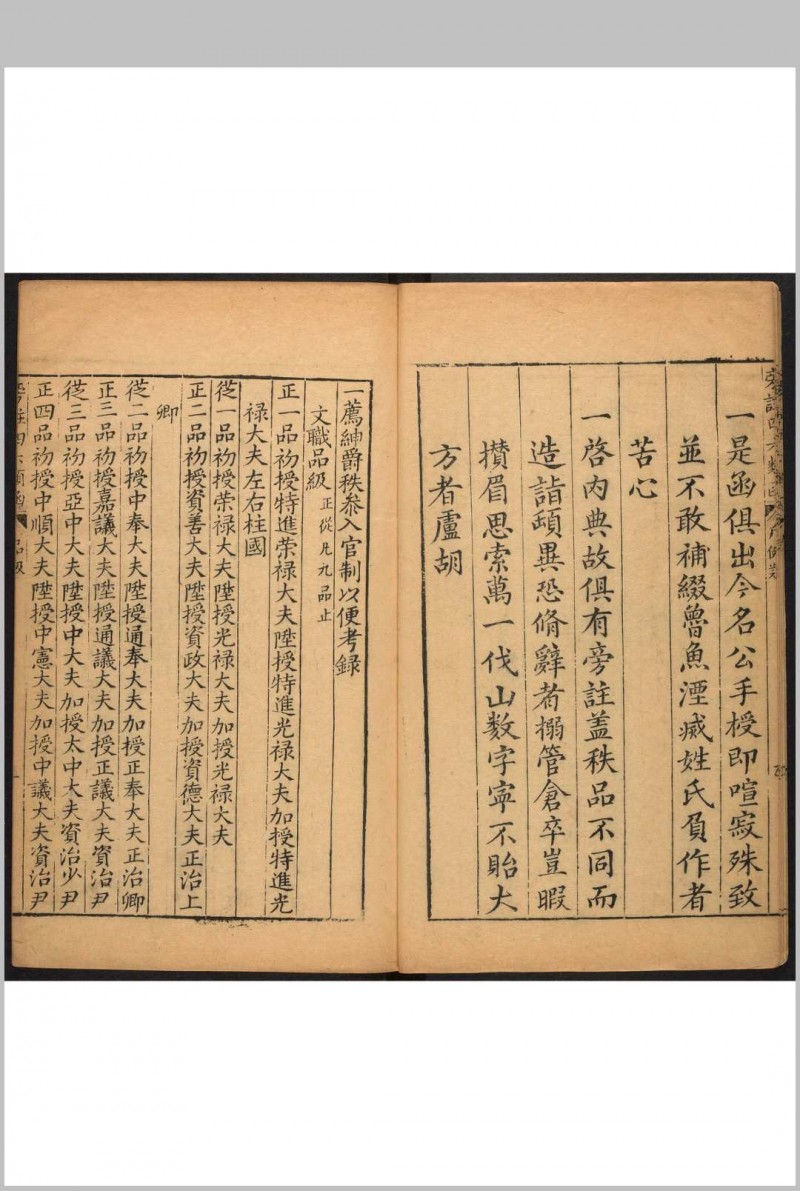 一是函俱出今名公手授即喧寂殊致
並不敢補綴魯魚湮滅姓氏負作者
苦心
一啓内典故俱有旁註盖秩品不同而
造詣頓異恐脩辭者搦管倉卒豈暇
攅眉思索萬一伐山数字寧不貽大
方者盧胡
一薦紳爵秩叅入官制以便考録
文職品級 正從凡九品止
正一品初授特進荣禄大夫陞授特進光禄大夫加授特進光
禄大夫左右柱國
從一品初授荣禄大夫陞授光禄大夫加授光禄大夫
正二品初授資善大夫陞授資政大夫加授資德大夫正治上
卿
從二品初授中奉大夫陞授通奉大夫加授正奉大夫正治卿
正三品初授嘉議大夫陞授通議大夫加授正議大夫資治尹
從三品初授亞中大夫陞授中大夫加授太中大夫資治少尹
正四品初授中順大夫陞授中憲大夫加授中議大夫資治尹
旁註四六類函 品級